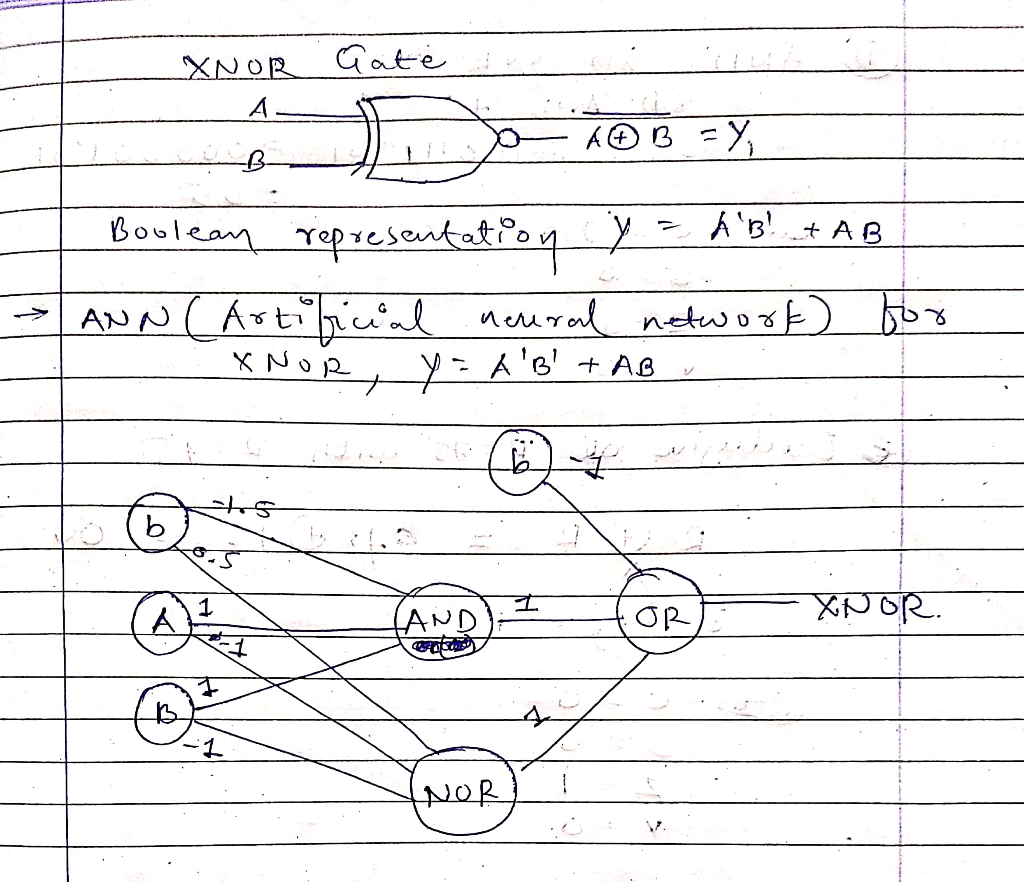 XNOR Gate
A
B
A ⊕ B = Y,
Boolean representation y = A'B' + AB
→ ANN ( Artificial neural network) for
XNOR, y = A'B' + AB
b -1
b -1.5
0.5
A 1
-1
AND 1
OR
XNOR.
B 1
-1
1
NOR